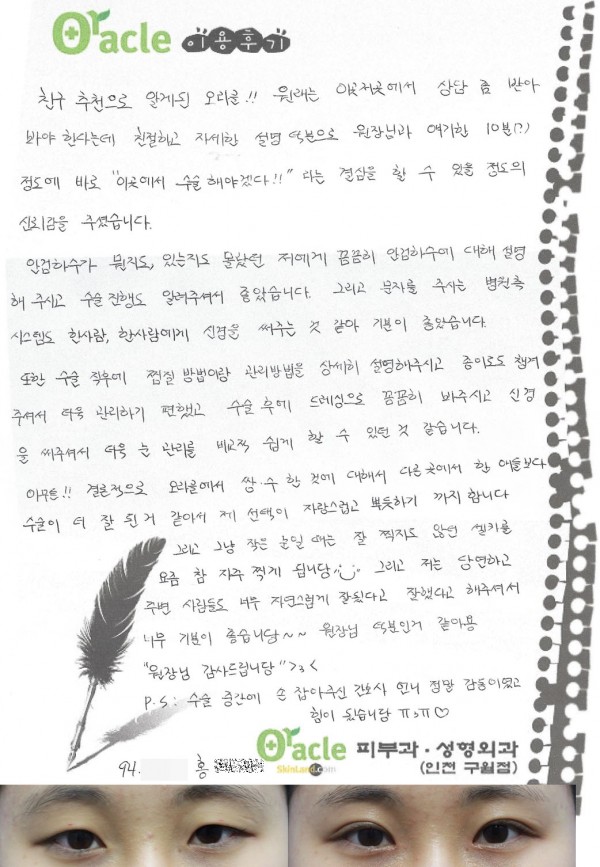 Oracle 이용후기
친구 추천으로 알게된 오라클!! 원래는 이곳저곳에서 상담 좀 받아
봐야 한다는데 친절하고 자세한 설명 덕분으로 원장님과 얘기한 10분(?)
정도에 바로 "이곳에서 수술해야겠다!!" 라는 결심을 할 수 있을 정도의
신뢰감을 주셨습니다.
안검하수가 뭔지도, 있는지도 몰랐던 저에게 꼼꼼히 안검하수에 대해 설명
해 주시고 수술 진행도 알려주셔서 좋았습니다. 그리고 문자를 주시는 병원측
시스템도 한사람, 한사람에게 신경을 써주는 것 같아 기분이 좋았습니다.
또한 수술 직후에 찜질 방법이랑 관리방법을 상세히 설명해주시고 종이로도 챙겨
주셔서 더욱 관리하기 편했고 수술 후에 드레싱으로 꼼꼼히 봐주시고 신경
을 써주셔서 더욱 눈 관리를 비교적 쉽게 할 수 있었던 것 같습니다.
아무튼!! 결론적으로 오라클에서 쌍·수 한 것에 대해서 다른 곳에서 한 애들보다
수술이 더 잘 된 거 같아서 제 선택이 자랑스럽고 뿌듯하기 까지 합니다
그리고 그냥 작은 눈일 때는 잘 찍지도 않던 셀카를
요즘 참 자주 찍게 됩니당 그리고 저는 당연하고
주변 사람들도 너무 자연스럽게 잘됐다고 잘했다고 해주셔서
너무 기분이 좋습니당~~ 원장님 덕분인거 같아용
"원장님 감사드립니당" >3<
P.S : 수술 중간에 손 잡아주신 간호사 언니 정말 감동이였고
힘이 됐습니당 ㅠ3ㅠ♡
Oracle 피부과·성형외과
SkinLand.com (인천 구월점)
94. 홍